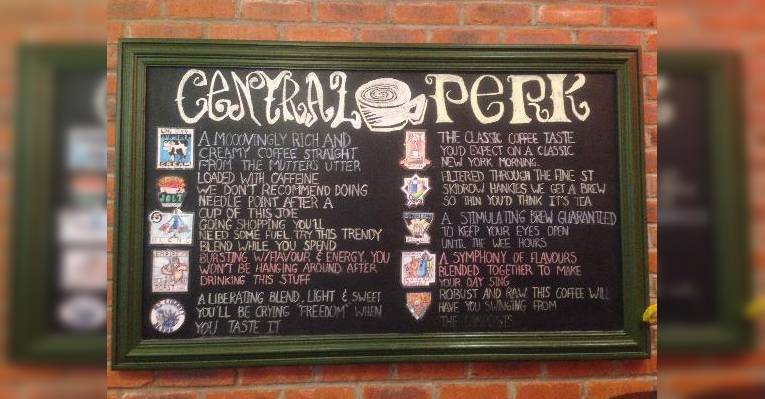 CENTRAL PERK
A MOOOVINGLY RICH AND
CREAMY COFFEE STRAIGHT
FROM THE MUTTER'S UTTER
LOADED WITH CAFFEINE
WE DON'T RECOMMEND DOING
NEEDLE POINT AFTER A
CUP OF THIS JOE
GOING SHOPPING YOU'LL
NEED SOME FUEL TRY THIS TRENDY
BLEND WHILE YOU SPEND
BURSTING W/FLAVOUR & ENERGY, YOU
WON'T BE HANGING AROUND AFTER
DRINKING THIS STUFF
A LIBERATING BLEND, LIGHT & SWEET
YOU'LL BE CRYING "FREEDOM" WHEN
YOU TASTE IT
THE CLASSIC COFFEE TASTE
YOU'D EXPECT ON A CLASSIC
NEW YORK MORNING.
FILTERED THROUGH THE FINE ST
SKIDROW HANKIES WE GET A BREW
SO THIN YOU'D THINK IT'S TEA
A STIMULATING BREW GUARANTEED
TO KEEP YOUR EYES OPEN
UNTIL THE WEE HOURS
A SYMPHONY OF FLAVOURS
BLENDED TOGETHER TO MAKE
YOUR DAY SING
ROBUST AND RAW. THIS COFFEE WILL
HAVE YOU SWINGING FROM
THE
JOLT